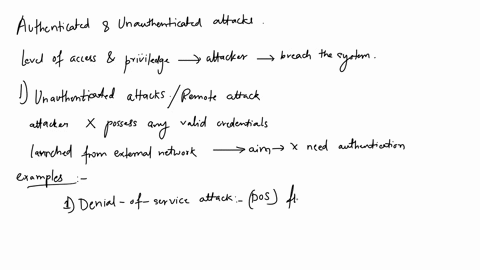 Authenticated & Unauthenticated attacks.
level of access & priviledge → attacker → breach the system.
1) Unauthonticated attacks./Remote attack
attacker X possess any valid credentials
launched from external network → aim → x need authentication
examples :-
1) Denial-of-service attack:- (DOS) fl